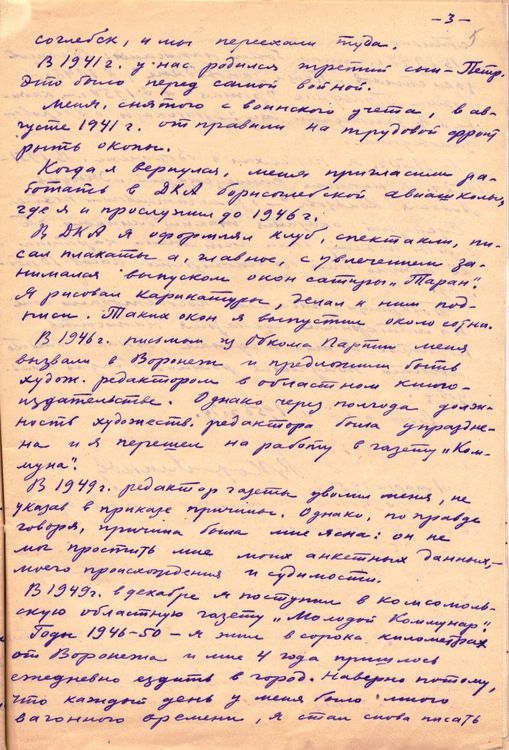 -3-
5
соглебск, и мы переехали туда.
В 1941 г. у нас родился третий сын - Петр.
Это было перед самой войной.
Меня, снятого с воинского учета, в ав-
густе 1941 г. отправили на трудовой фронт
рыть окопы.
Когда я вернулся, меня пригласили ра-
ботать в ДКА борисоглебской авиашколы,
где я и прослужил до 1946 г.
В ДКА я оформлял клуб, спектакли, пи-
сал плакаты а, главное, с увлечением за-
нимался выпуском окон сатиры „Таран".
Я рисовал карикатуры, делал к ним под-
писи. Таких окон я выпустил около сотни.
В 1946г. письмом из Обкома Партии меня
вызвали в Воронеж и предложили быть
худож. редактором в областном книго-
издательстве. Однако через полгода долж-
ность художеств. редактора была упраздне-
на и я перешел на работу в газету „Ком-
муна".
В 1949г. редактор газеты уволил меня, не
указав в приказе причины. Однако, по правде
говоря, причина была мне ясна: он не
мог простить мне моих анкетных данных,-
моего происхождения и судимости.
В 1949г. в декабре я поступил в комсомоль-
скую областную газету „Молодой Коммунар".
Годы 1946-50 - я жил в сорока километрах
от Воронежа и мне 4 года пришлось
ежедневно ездить в город. Наверно потому,
что каждый день у меня было много
вагонного времени, я стал снова писать